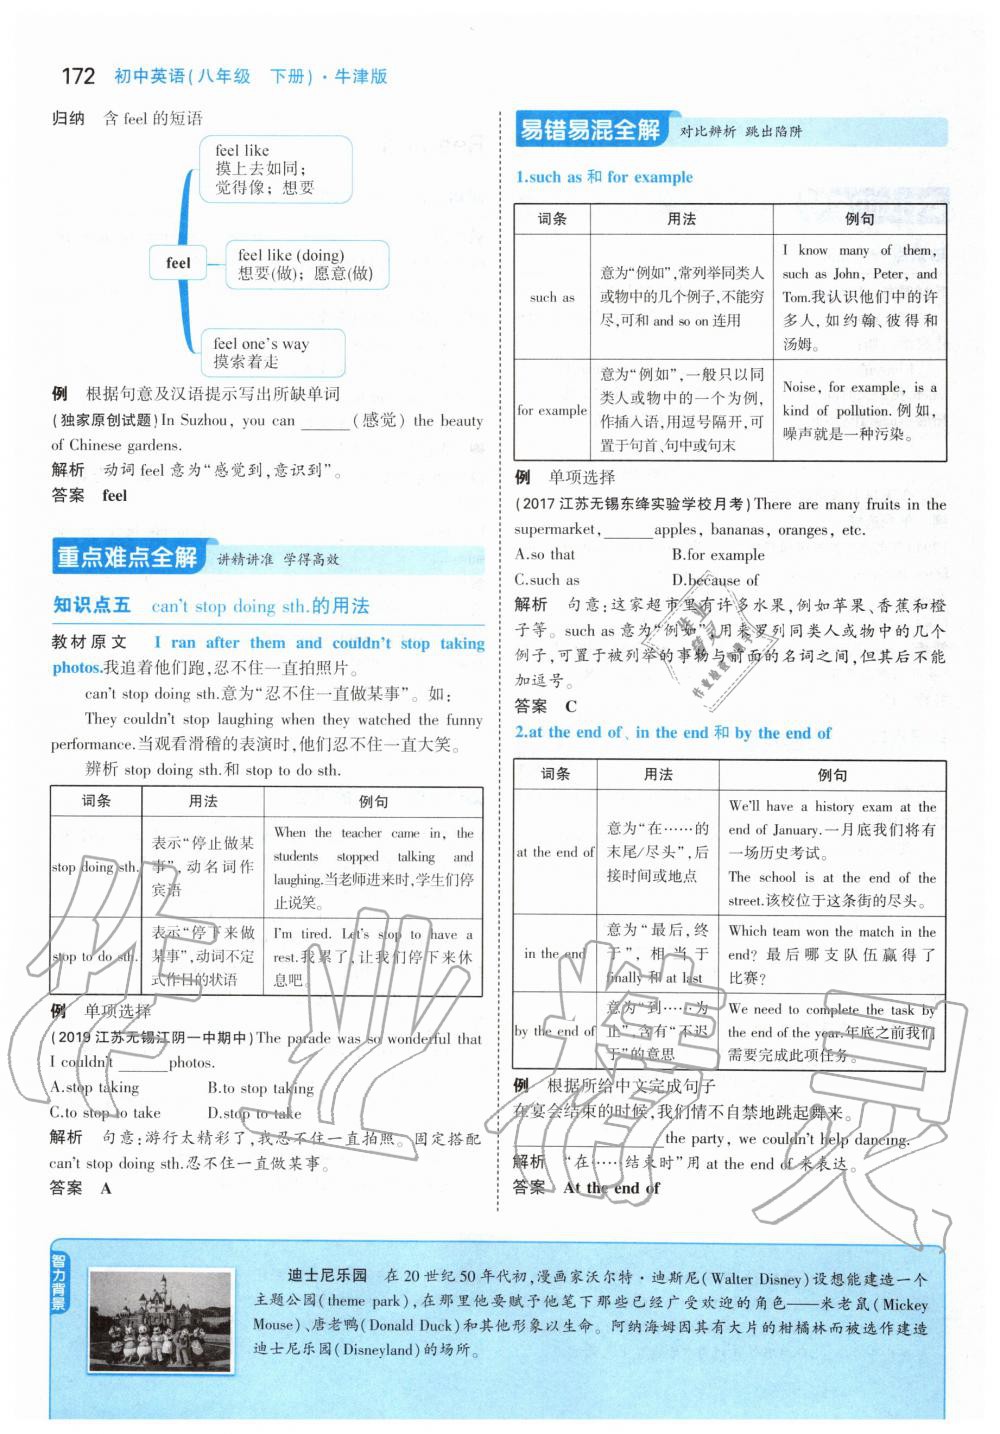 172 初中英语(八年级 下册)·牛津版
归纳 含 feel 的短语
feel like
摸上去如同;
觉得像;想要
feel
feel like (doing)
想要(做);愿意(做)
feel one's way
摸索着走
例 根据句意及汉语提示写出所缺单词
(独家原创试题)In Suzhou, you can ______(感觉) the beauty
of Chinese gardens.
解析 动词 feel 意为“感觉到,意识到”。
答案 feel
重点难点全解 讲精讲准 学得高效
知识点五 can't stop doing sth.的用法
教材原文 I ran after them and couldn't stop taking
photos.我追着他们跑,忍不住一直拍照片。
can't stop doing sth.意为“忍不住一直做某事”。如:
They couldn't stop laughing when they watched the funny
performance.当观看滑稽的表演时,他们忍不住一直大笑。
辨析 stop doing sth.和 stop to do sth.
词条 用法 例句
stop doing sth.
表示“停止做某
事”,动名词作
宾语
When the teacher came in, the
students stopped talking and
laughing.当老师进来时,学生们停
止说笑。
stop to do sth.
表示“停下来做
某事”,动词不定
式作目的状语
I'm tired. Let's stop to have a
rest.我累了,让我们停下来休
息吧。
例 单项选择
(2019江苏无锡江阴一中期中)The parade was so wonderful that
I couldn't ______photos.
A.stop taking B.to stop taking
C.to stop to take D.stop to take
解析 句意:游行太精彩了,我忍不住一直拍照。固定搭配
can't stop doing sth.忍不住一直做某事。
答案 A
易错易混全解 对比辨析 跳出陷阱
1.such as 和 for example
词条 用法 例句
such as
意为“例如”,常列举同类人
或物中的几个例子,不能穷
尽,可和 and so on 连用
I know many of them,
such as John, Peter, and
Tom.我认识他们中的许
多人,如约翰、彼得和
汤姆。
for example
意为“例如”,一般只以同
类人或物中的一个为例,
作插入语,用逗号隔开,可
置于句首、句中或句末
Noise, for example, is a
kind of pollution.例如,
噪声就是一种污染。
例 单项选择
(2017江苏无锡东绛实验学校月考)There are many fruits in the
supermarket,______apples, bananas, oranges, etc.
A.so that B.for example
C.such as D.because of
解析 句意:这家超市里有许多水果,例如苹果、香蕉和橙
子等。such as 意为“例如”,用来罗列同类人或物中的几个
例子,可置于被列举的事物与前面的名词之间,但其后不能
加逗号。
答案 C
2.at the end of、in the end 和 by the end of
词条 用法 例句
at the end of
意为“在……的
末尾/尽头”,后
接时间或地点
We'll have a history exam at the
end of January.一月底我们将有
一场历史考试。
The school is at the end of the
street.该校位于这条街的尽头。
in the end
意为“最后,终
于”,相当于
finally 和 at last
Which team won the match in the
end?最后哪支队伍赢得了
比赛?
by the end of
意为“到……为
止”,含有“不迟
于”的意思
We need to complete the task by
the end of the year.年底之前我们
需要完成此项任务。
例 根据所给中文完成句子
在宴会结束的时候,我们情不自禁地跳起舞来。
__________________the party, we couldn't help dancing.
解析 “在……结束时”用 at the end of 来表达。
答案 At the end of
智力背景
迪士尼乐园 在 20 世纪 50 年代初,漫画家沃尔特·迪斯尼(Walter Disney)设想能建造一个
主题公园(theme park),在那里他要赋予他笔下那些已经广受欢迎的角色——米老鼠(Mickey
Mouse)、唐老鸭(Donald Duck)和其他形象以生命。阿纳海姆因其有大片的柑橘林而被选作建造
迪士尼乐园(Disneyland)的场所。
作业精灵